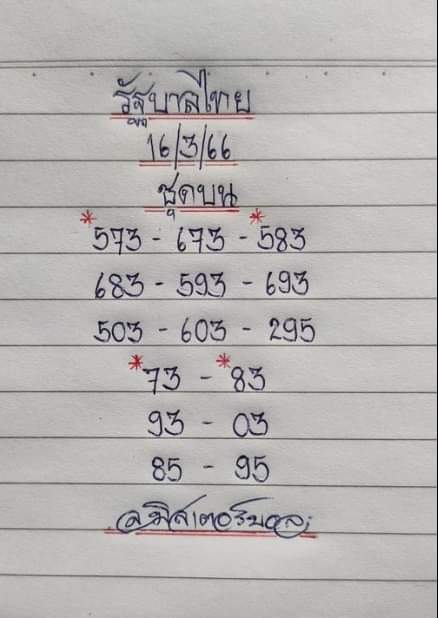 รัฐบาลไทย
16/3/66
ชุดบน
*573 - 673 - *583
683 - 593 - 693
503 - 603 - 295
*73 - *83
93 - 03
85 - 95
อ.มิสเตอร์บอล